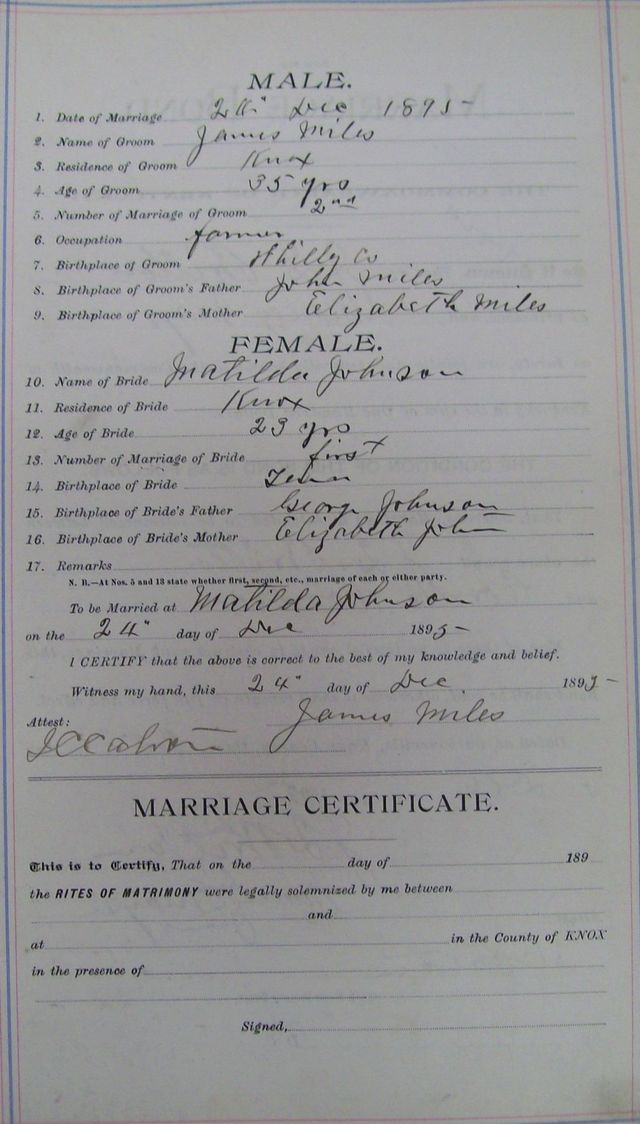 MALE.
1. Date of Marriage 24" Dec 1895
2. Name of Groom James Miles
3. Residence of Groom Knox
4. Age of Groom 35 yrs
5. Number of Marriage of Groom 2nd
6. Occupation farmer
7. Birthplace of Groom Whitly Co
8. Birthplace of Groom's Father John Miles
9. Birthplace of Groom's Mother Elizabeth Miles
FEMALE.
10. Name of Bride Matilda Johnson
11. Residence of Bride Knox
12. Age of Bride 23 yrs
13. Number of Marriage of Bride first
14. Birthplace of Bride Tenn
15. Birthplace of Bride's Father George Johnson
16. Birthplace of Bride's Mother Elizabeth John
17. Remarks
N. B.—At Nos. 5 and 13 state whether first, second, etc., marriage of each or either party.
To be Married at Matilda Johnson
on the 24" day of Dec 1895
I CERTIFY that the above is correct to the best of my knowledge and belief.
Witness my hand, this 24" day of Dec. 1895
James Miles
Attest:
MARRIAGE CERTIFICATE.
This is to Certify, That on the day of 189
the RITES OF MATRIMONY were legally solemnized by me between
and
at in the County of KNOX
in the presence of
Signed,